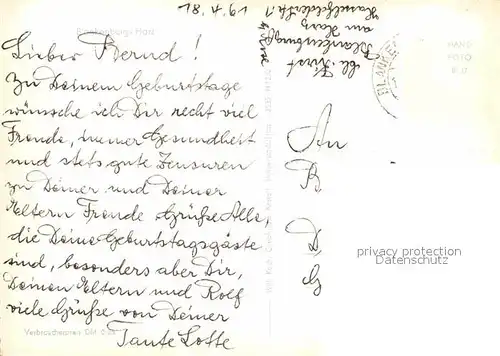 18.4.61
Blankenburg Harz
Lieber Bernd!
Zu Deinem Geburtstage
wünsche ich Dir recht viel
Freude, immer Gesundheit
und stets gute Zensuren
zu Deiner und Deiner
Eltern Freude. Grüße Alle,
die Deine Geburtstagsgäste
sind, besonders aber Dir,
Deinen Eltern und Rolf
viele Grüße von Deiner
Tante Lotte
Blankenburg
am Harz
Hasselfelder Str. 1
BLANKE
HAND
FOTO
An
B
D
G
privacy protection
Datenschutz
Verbraucherpreis DM